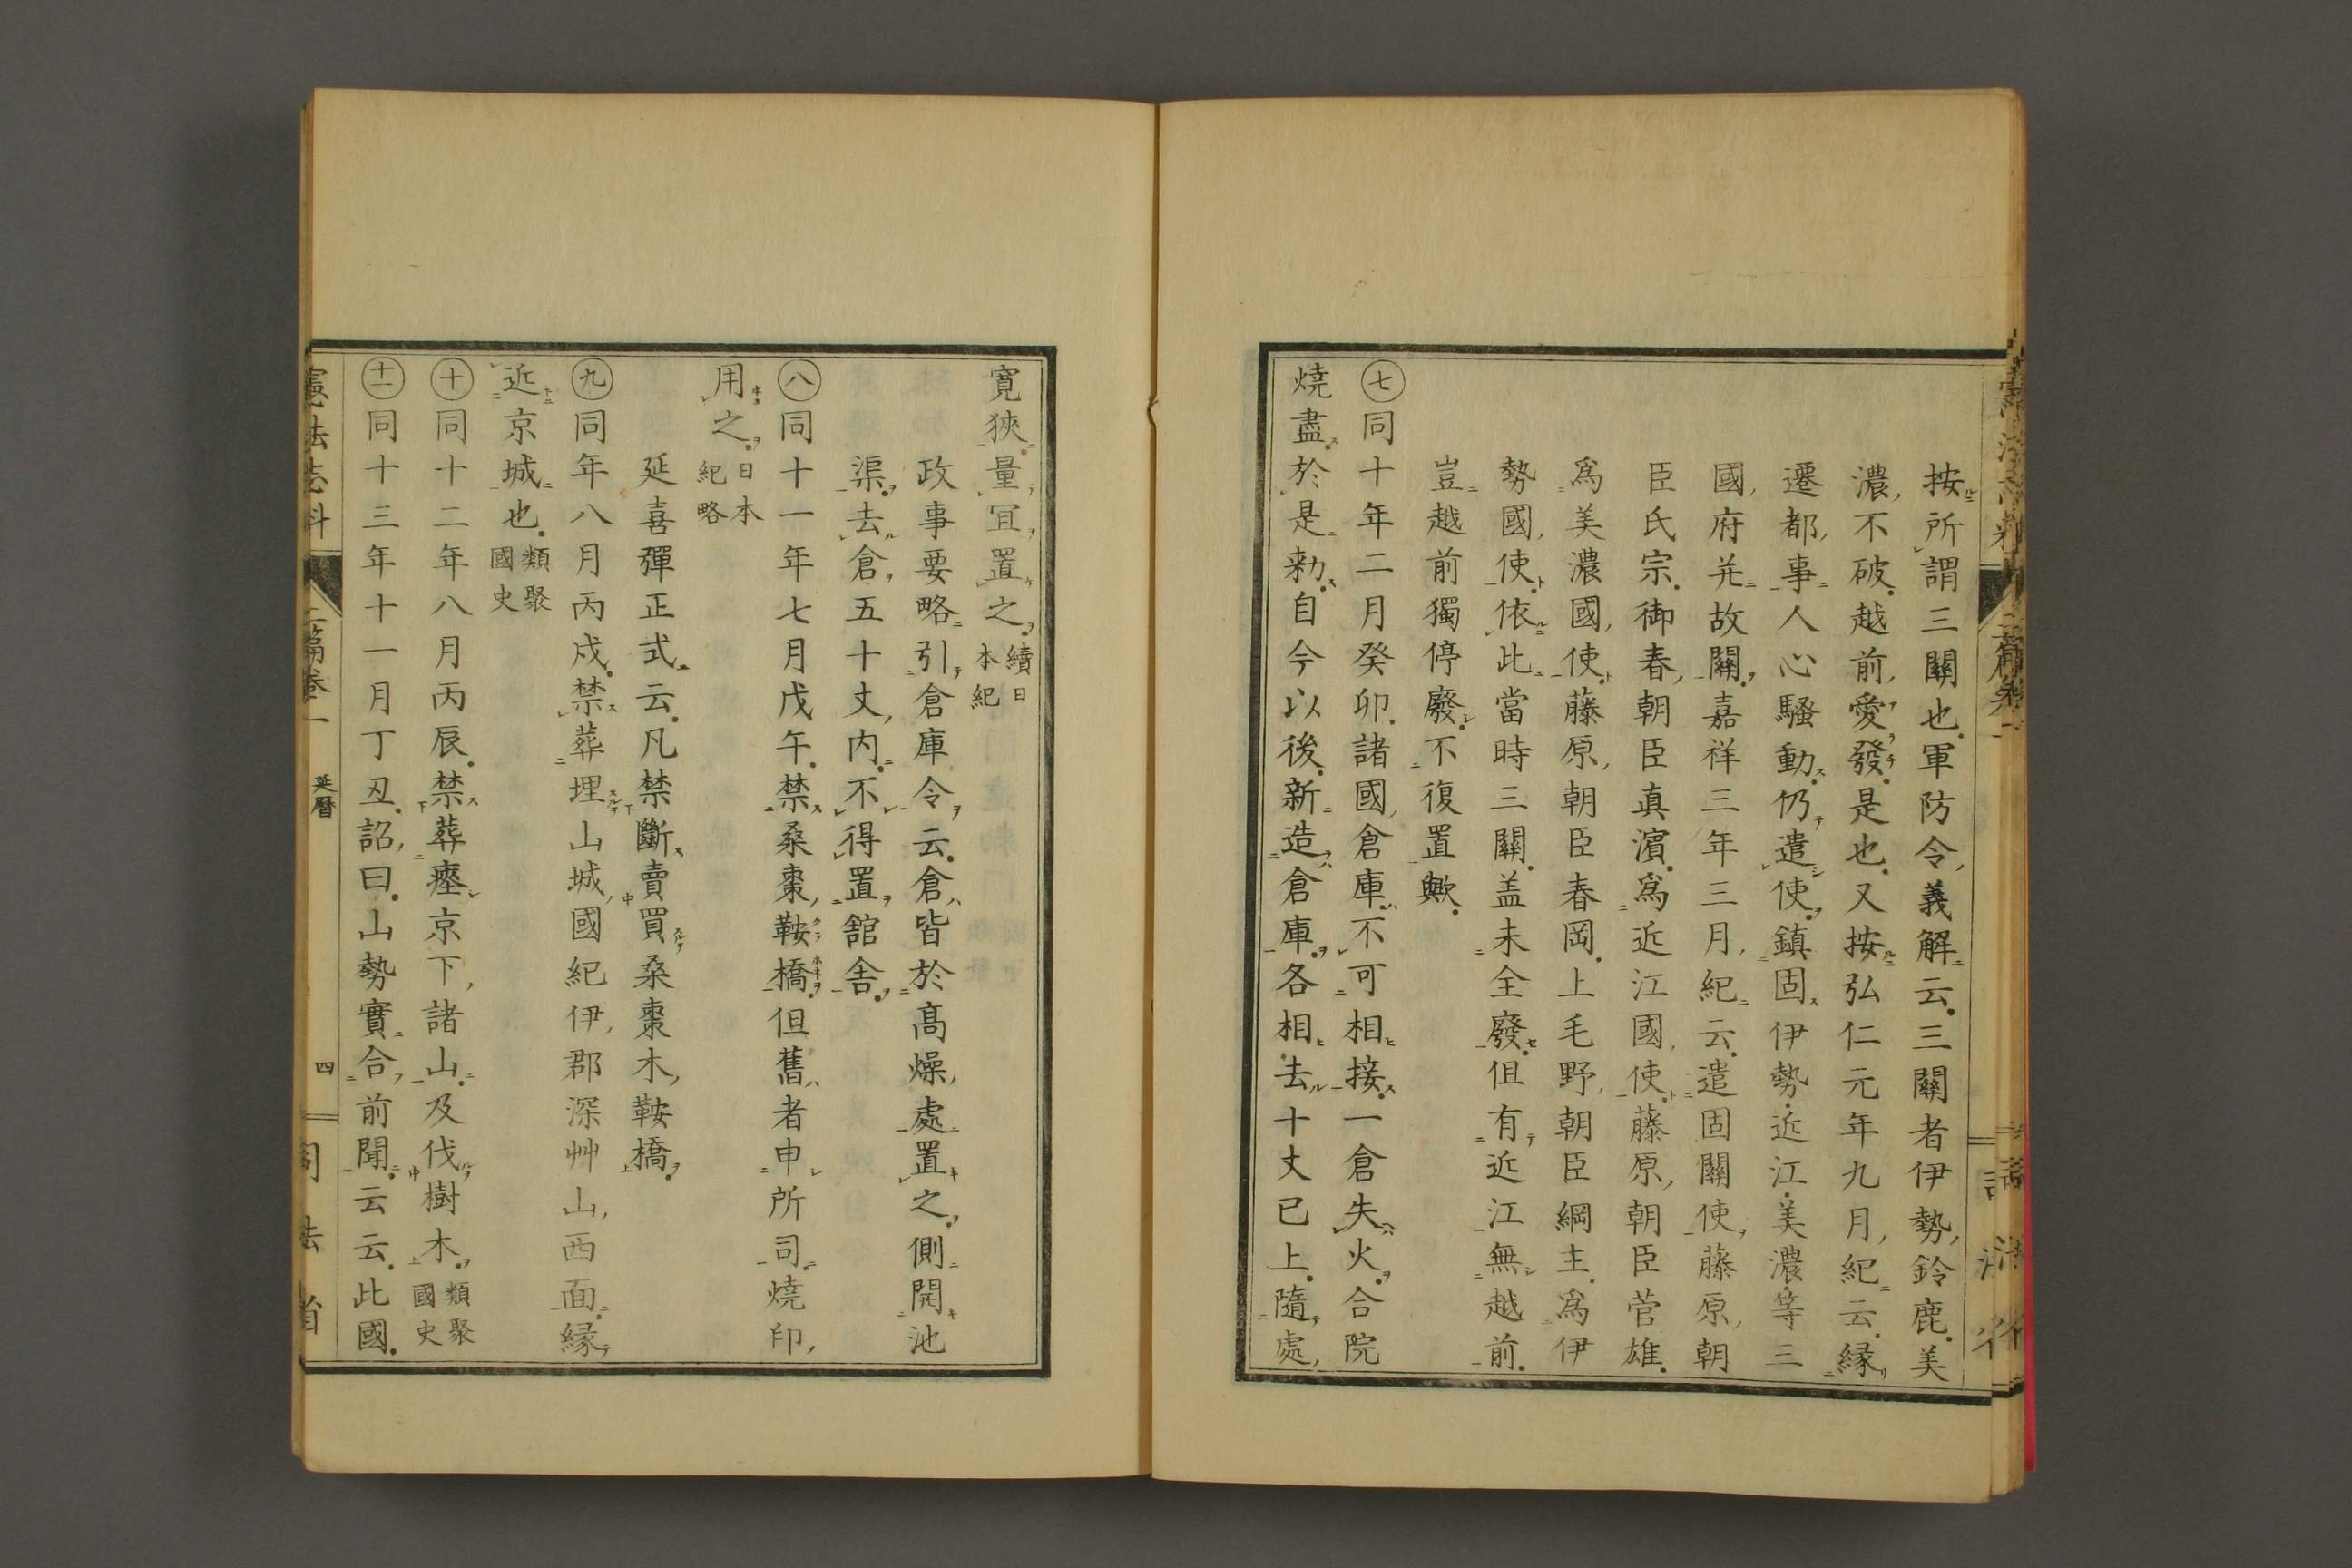 按所謂三關也軍防令義解云三關者伊勢鈴鹿美
濃不破越前愛發是也又按弘仁元年九月紀云縁
遷都事人心騷動仍遣使鎮固伊勢近江美濃等三
國府并故關嘉祥三年三月紀云遣固關使藤原朝
臣氏宗御春朝臣真濱爲近江國使藤原朝臣菅雄
爲美濃國使藤原朝臣春岡上毛野朝臣綱主爲伊
勢國使依此當時三關盖未全廢但有近江無越前
豈越前獨停廢不復置歟
㊆同十年二月癸卯諸國倉庫不可相接一倉失火合院
燒盡於是勅自今以後新造倉庫各相去十丈已上隨處
寬狹量冝置之續日本紀
政事要略引倉庫令云倉皆於髙燥處置之側開池
渠去倉五十丈内不得置舘舎
㊇同十一年七月戊午禁桑棗鞍橋但舊者申所司燒印
用之日本紀略
延喜彈正式云凡禁斷賣買桑棗木鞍橋
㊈同年八月丙戌禁葬埋山城國紀伊郡深艸山西面縁
近京城也類聚國史
㊉同十二年八月丙辰禁葬瘞京下諸山及伐樹木類聚國史
⑪同十三年十一月丁丑詔曰山勢實合前聞云云此國
憲法志料 二篇卷一 延曆 四 司法省